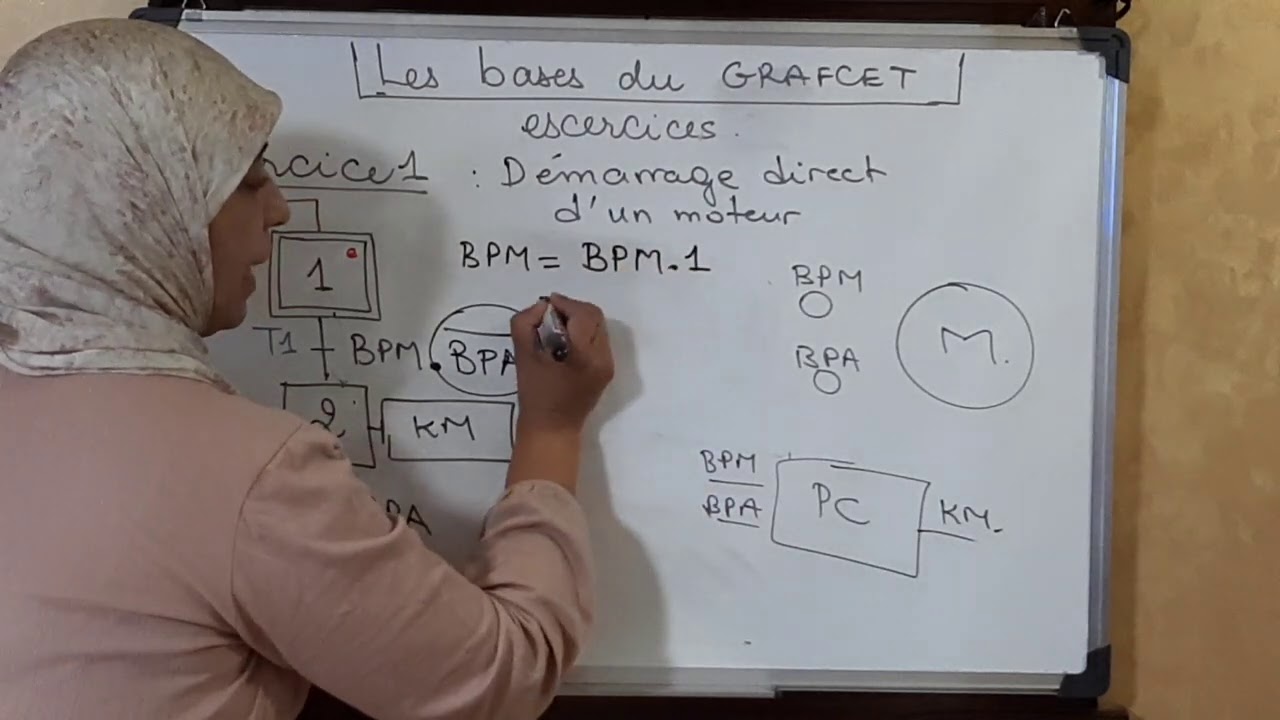 Les bases du GRAFCET
escercices.
rcice 1 : Démarrage direct
d'un moteur
BPM = BPM.1
1
T1 BPM. BPA
2 KM
BPA
BPM
BPA
M.
BPM
BPA
PC
KM.